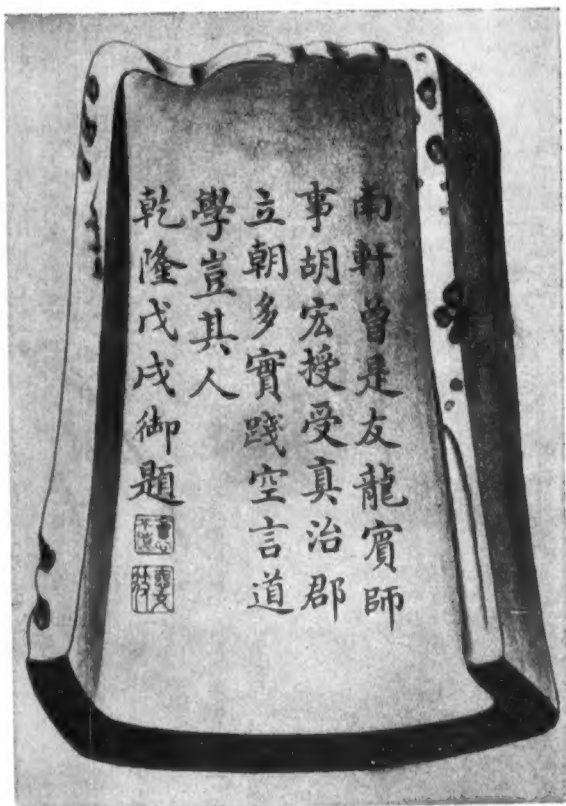 南軒曾是友龍賓師
事胡宏授受真治郡
立朝多實踐空言道
學豈其人
乾隆戊戌御題
會心
不遠
德充
符